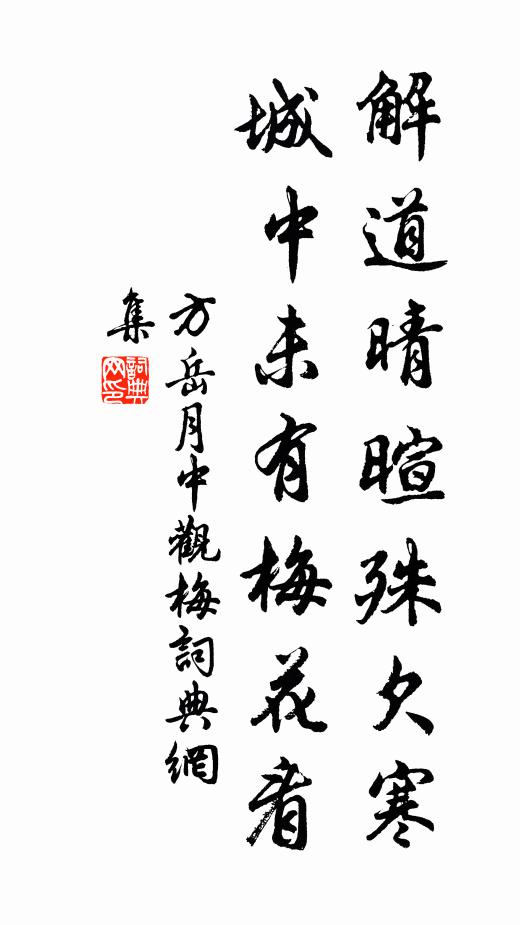 解道晴暄殊欠寒
城中未有梅花看
方岳月中觀梅詞典網
集
詞典網印